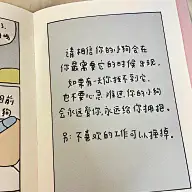 请相信你的小狗会在
你最需要它的时候出现。
如果有一天你找不到它，
也不要心急，难过，你的小狗
会永远爱你，永远给你拥抱。
另：不喜欢的工作可以换掉。